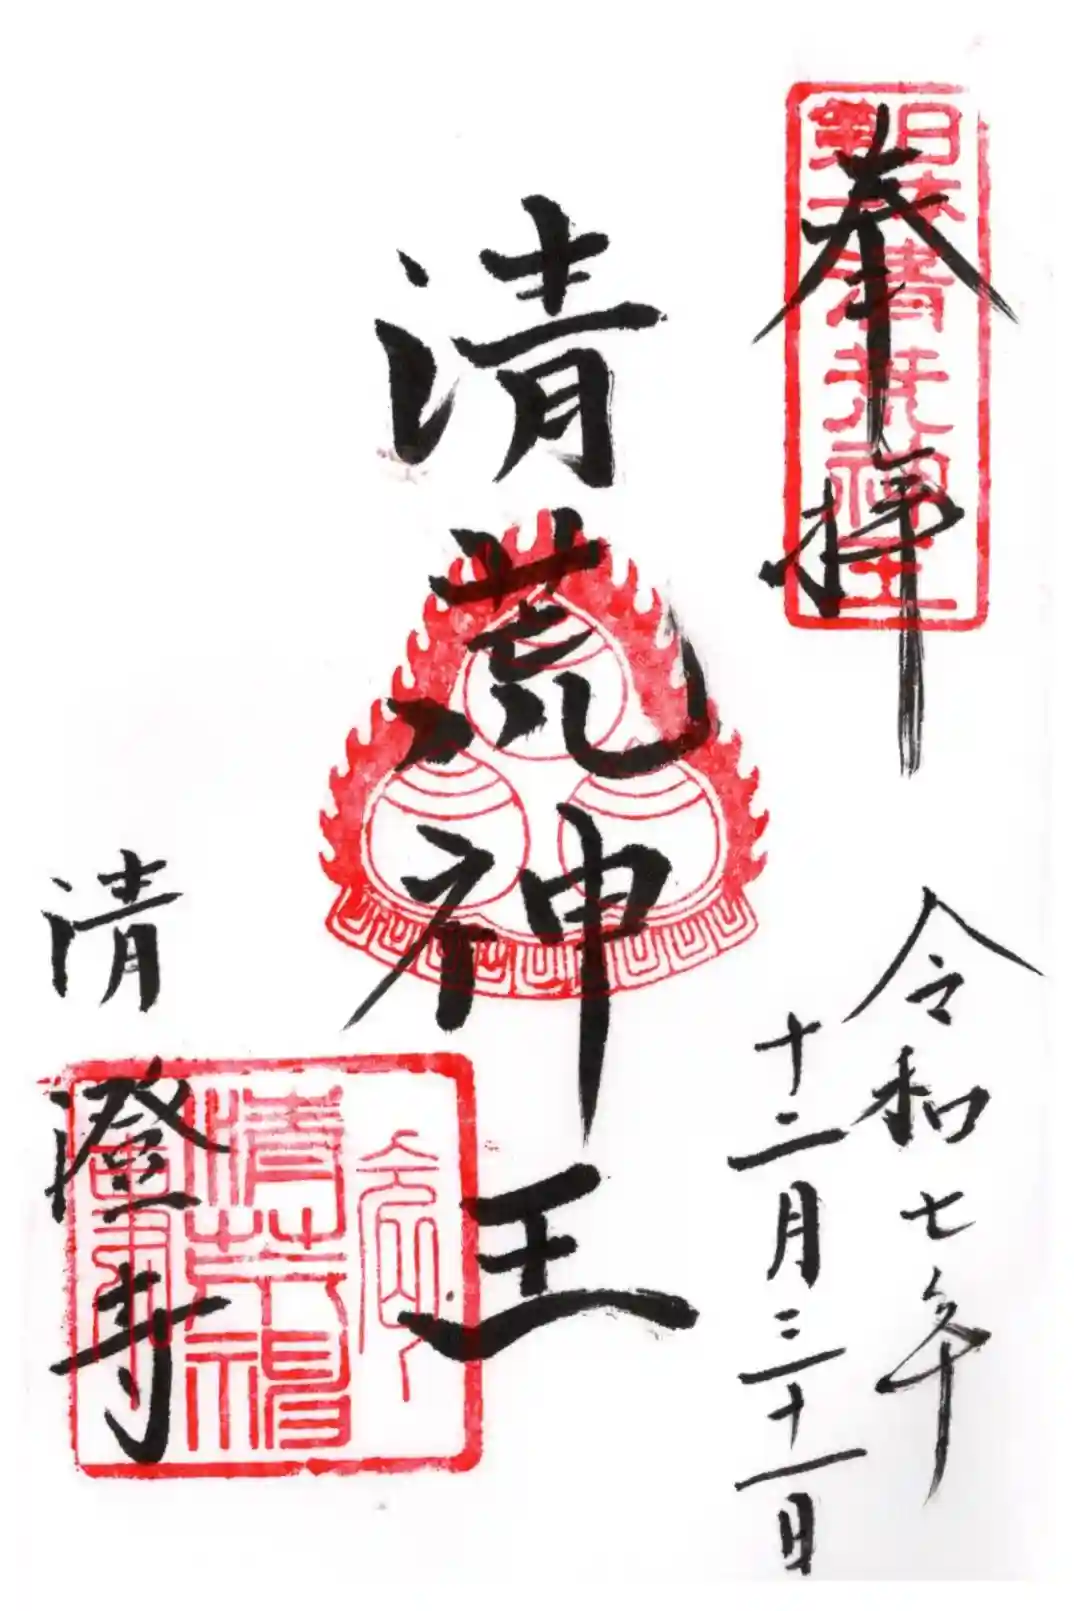 奉拝
日本第一清荒神王
令和七年
十二月三十一日
清荒神王
清澄寺
清荒神